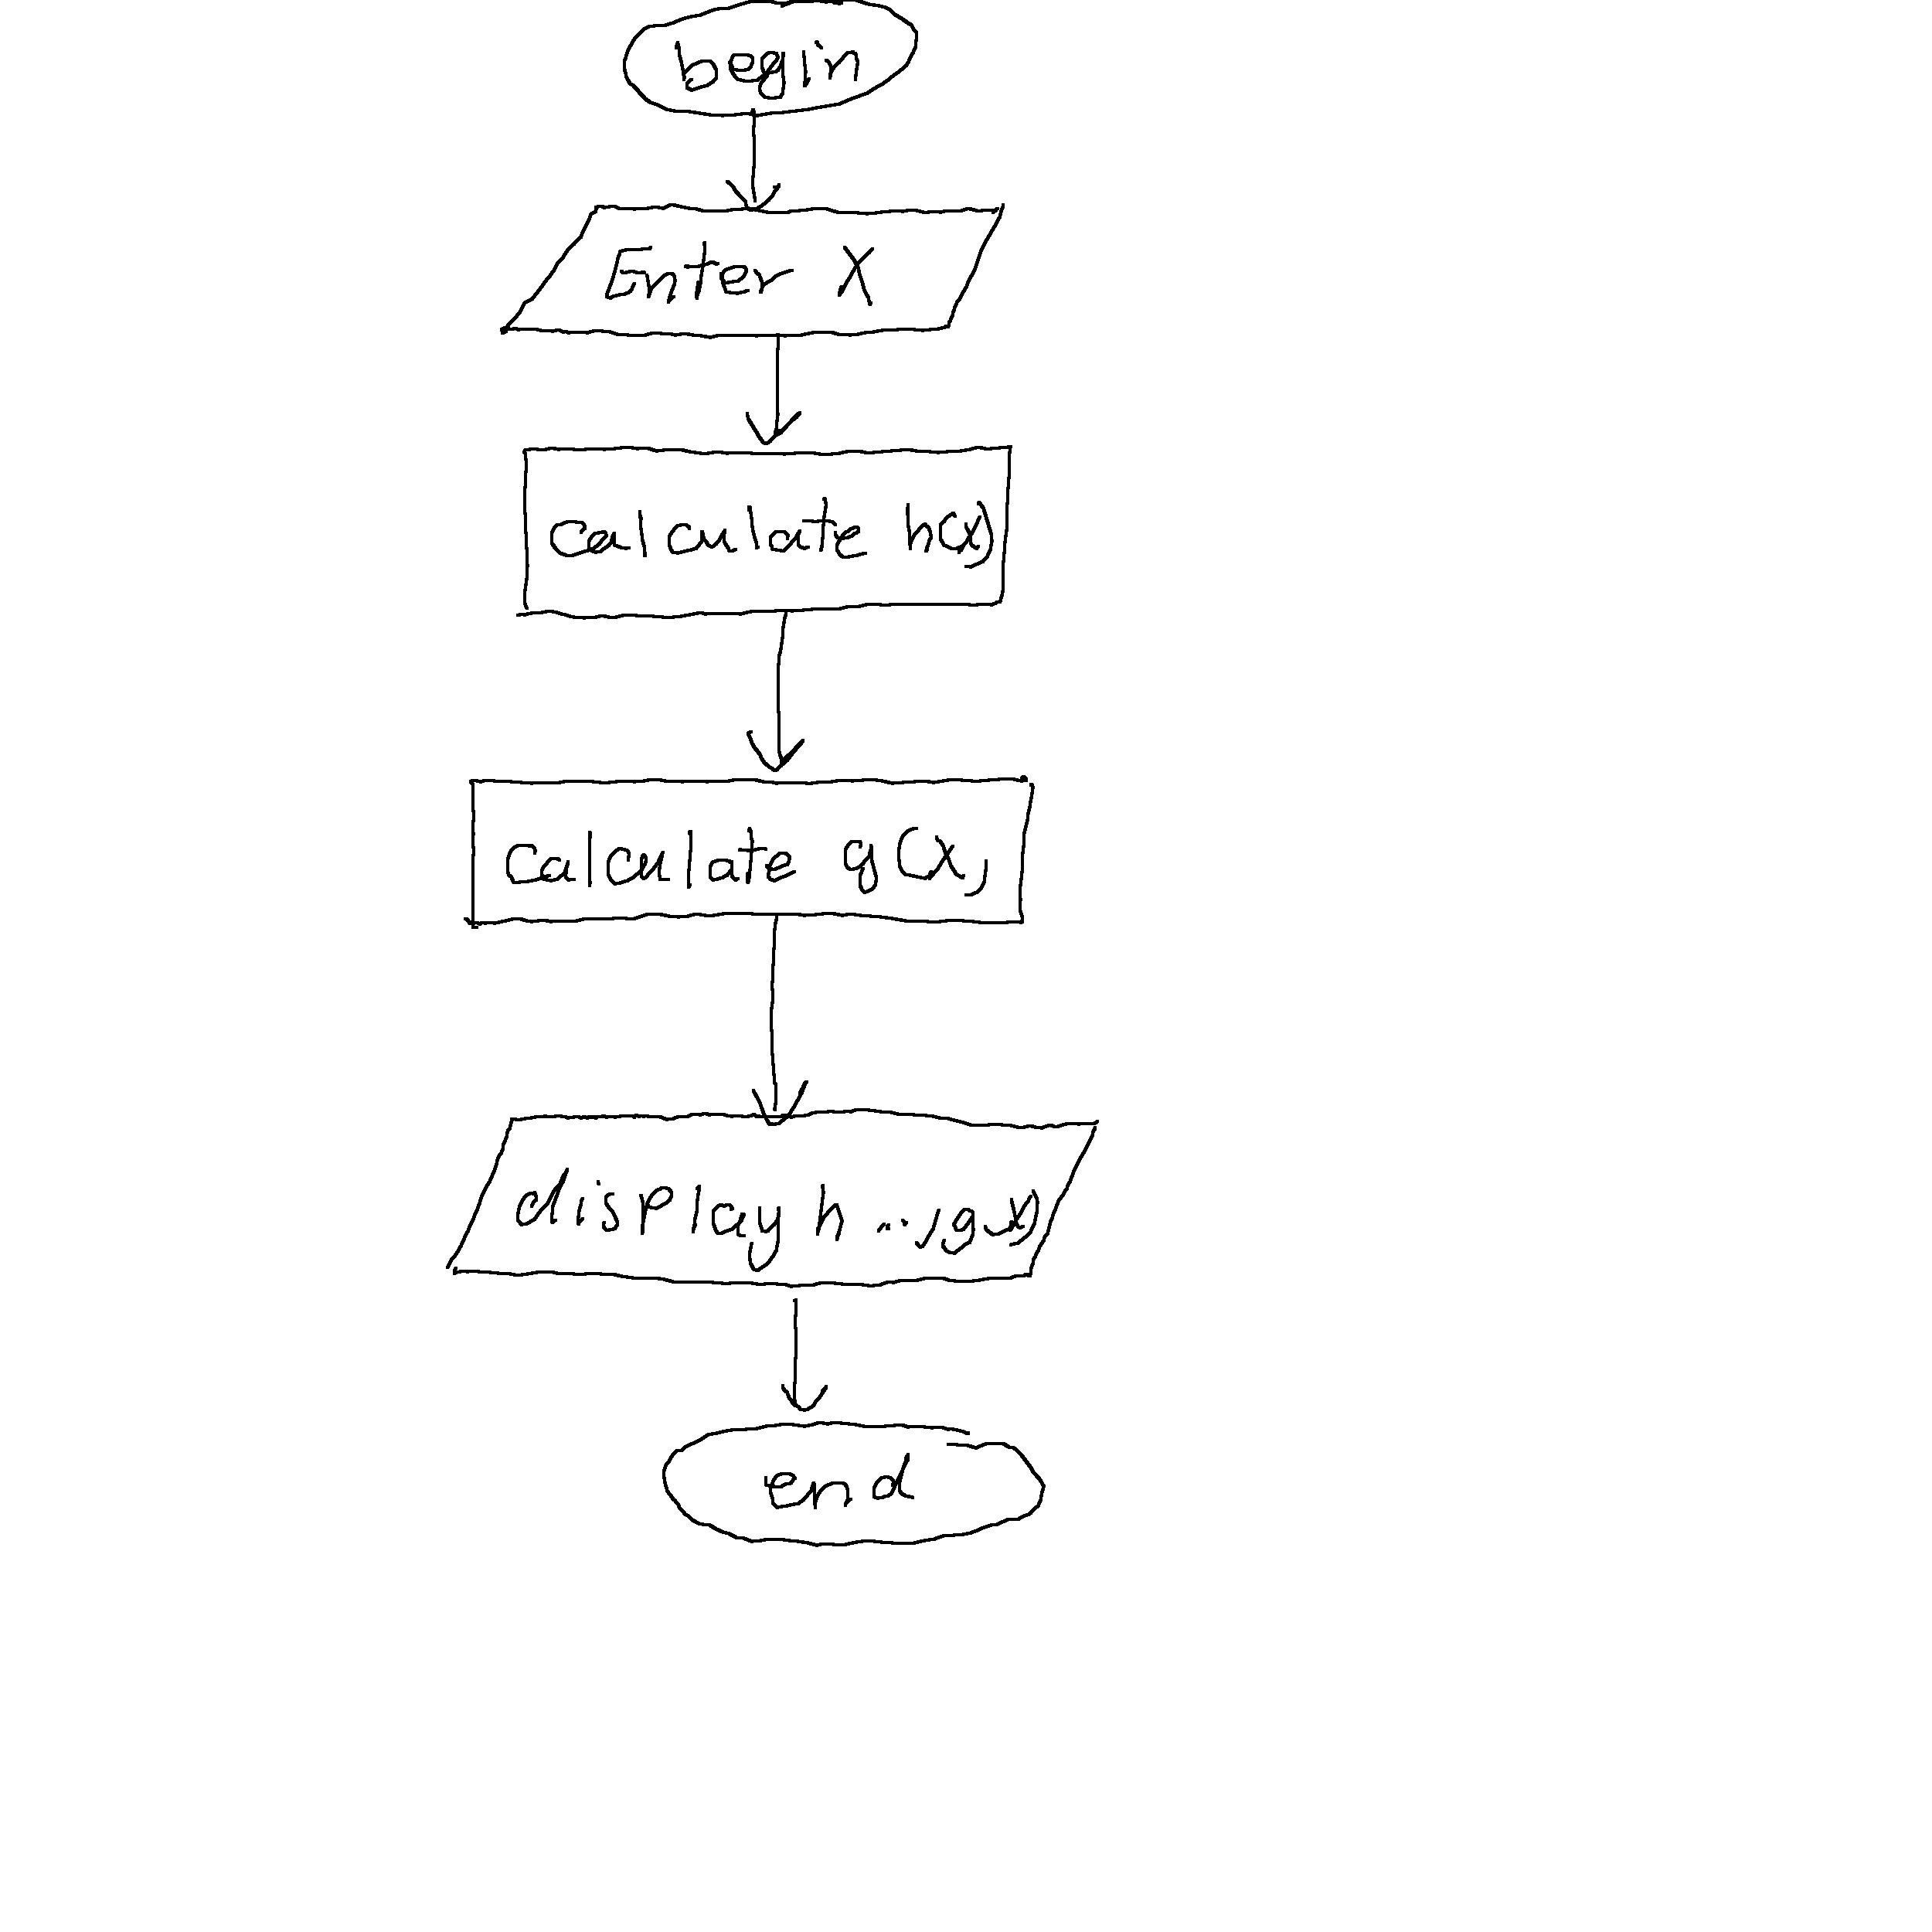 begin
Enter X
calculate h(x)
calculate g(x)
display h ..., g(x)
end